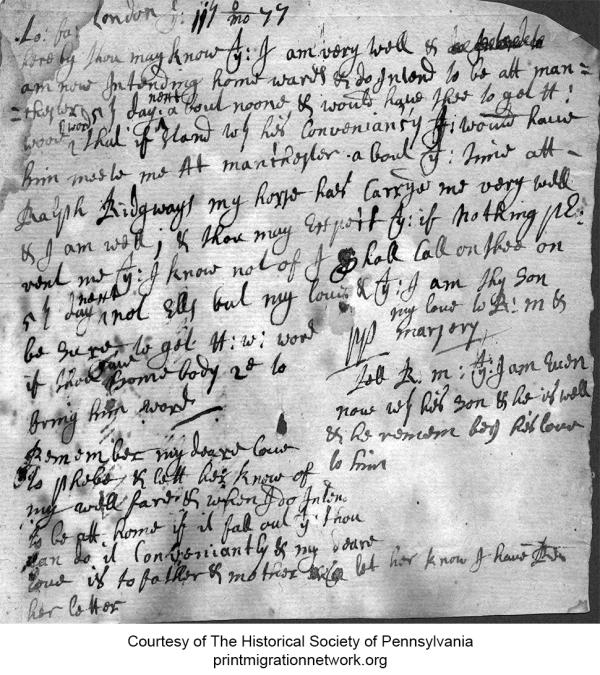 London ye: 8 mo 77
Lo: fa
here by thou may know ty: I am very well &
am now Intending home wards & do Intend to be att man=
=chester 5t day: next about noone & would have thee to get H:
wood word that if it stand wt his Conveniancy ty: would have
him meete me At manchester about ty: time att
Ralph Ridgways my horse has Carrye me very well
& I am well; & thou may Expectt ty: if nothing pre:
vent me ty: I know not of I shall Call on thee on
5t day next not Ells but my love & ty: I am thy son
my love to R: m &
be sure to get H: w: word
marjery
if thou Some body to
bring him word
tell R: m: ty: I am Even
now wt his son & he is well
& he remembers his love
to him
Remember my deare love
to phebe & lett her know of
my well fare & when I do Inten
to be att home if it fall out yt thou
can do it Conveniantly & my deare
love is to father & mother & let her know I have
her letter
Courtesy of The Historical Society of Pennsylvania
printmigrationnetwork.org